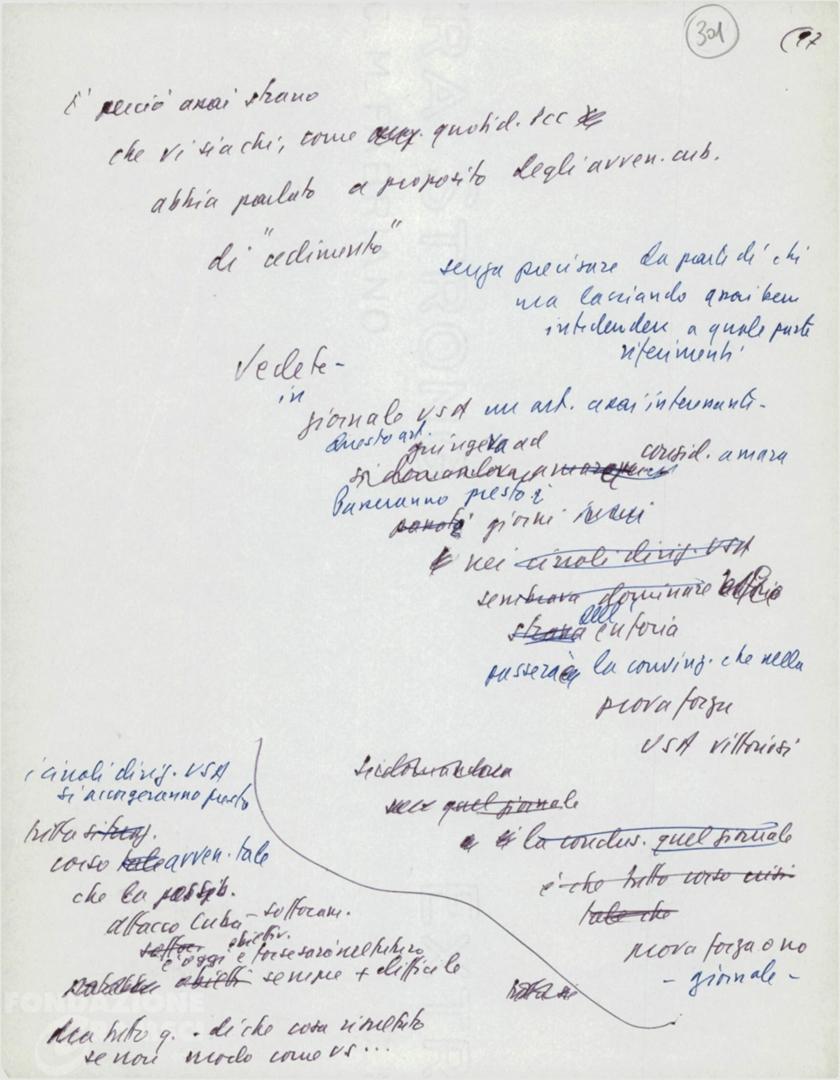 301
97
È perciò assai strano
che vi sia chi, come quotid. PCC
abbia parlato a proposito degli avven. cub.
di "cedimento"
senza precisare da parte di chi
ma lasciando assai bene
intendere a quale parte
riferimenti
Vedete-
in
giornale USA un art. assai interessante-
Questo art.
giungeva ad
si domandava consid. amara
Passeranno presto i
giorni
nei circoli dirig. USA
sembrava dominare
strana euforia
passerà la convinz. che nella
prova forza
USA vittoriosi
i circoli dirig. USA
si accorgeranno presto
tutta situaz.
corso tale avven. tale
che la possib.
attacco Cuba - soffocam.
obiettiv.
è oggi e forse sarà nel futuro
obietti sempre + difficile
Ma tutto q. - di che cosa risultato
se non modo come vs...
si domandava
quel giornale
la conclus. quel giornale
è che tutto corso crisi
tale che
prova forza o no
- giornale -
FONDAZIONE